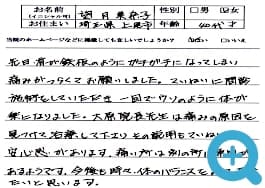 お名前
(イニシャル可)
望月美奈子
性別
□男 ☑女
お住まい
埼玉県上尾市
年齢
40代才
当院のホームページなどに掲載してもよいでしょうか？ ☑はい □いいえ
先日肩が鉄板のようにガチガチになってしまい
痛みがつらくてお願いしました。ていねいに問診
施術をしていただき一回でウソのように体が
楽になりました。大原院長先生は痛みの原因を
見つけて治療して下さりその説明もていねい
安心感があります。痛い所は別の所に
あるようです。今後も時々体のバランスを
たいと思います。